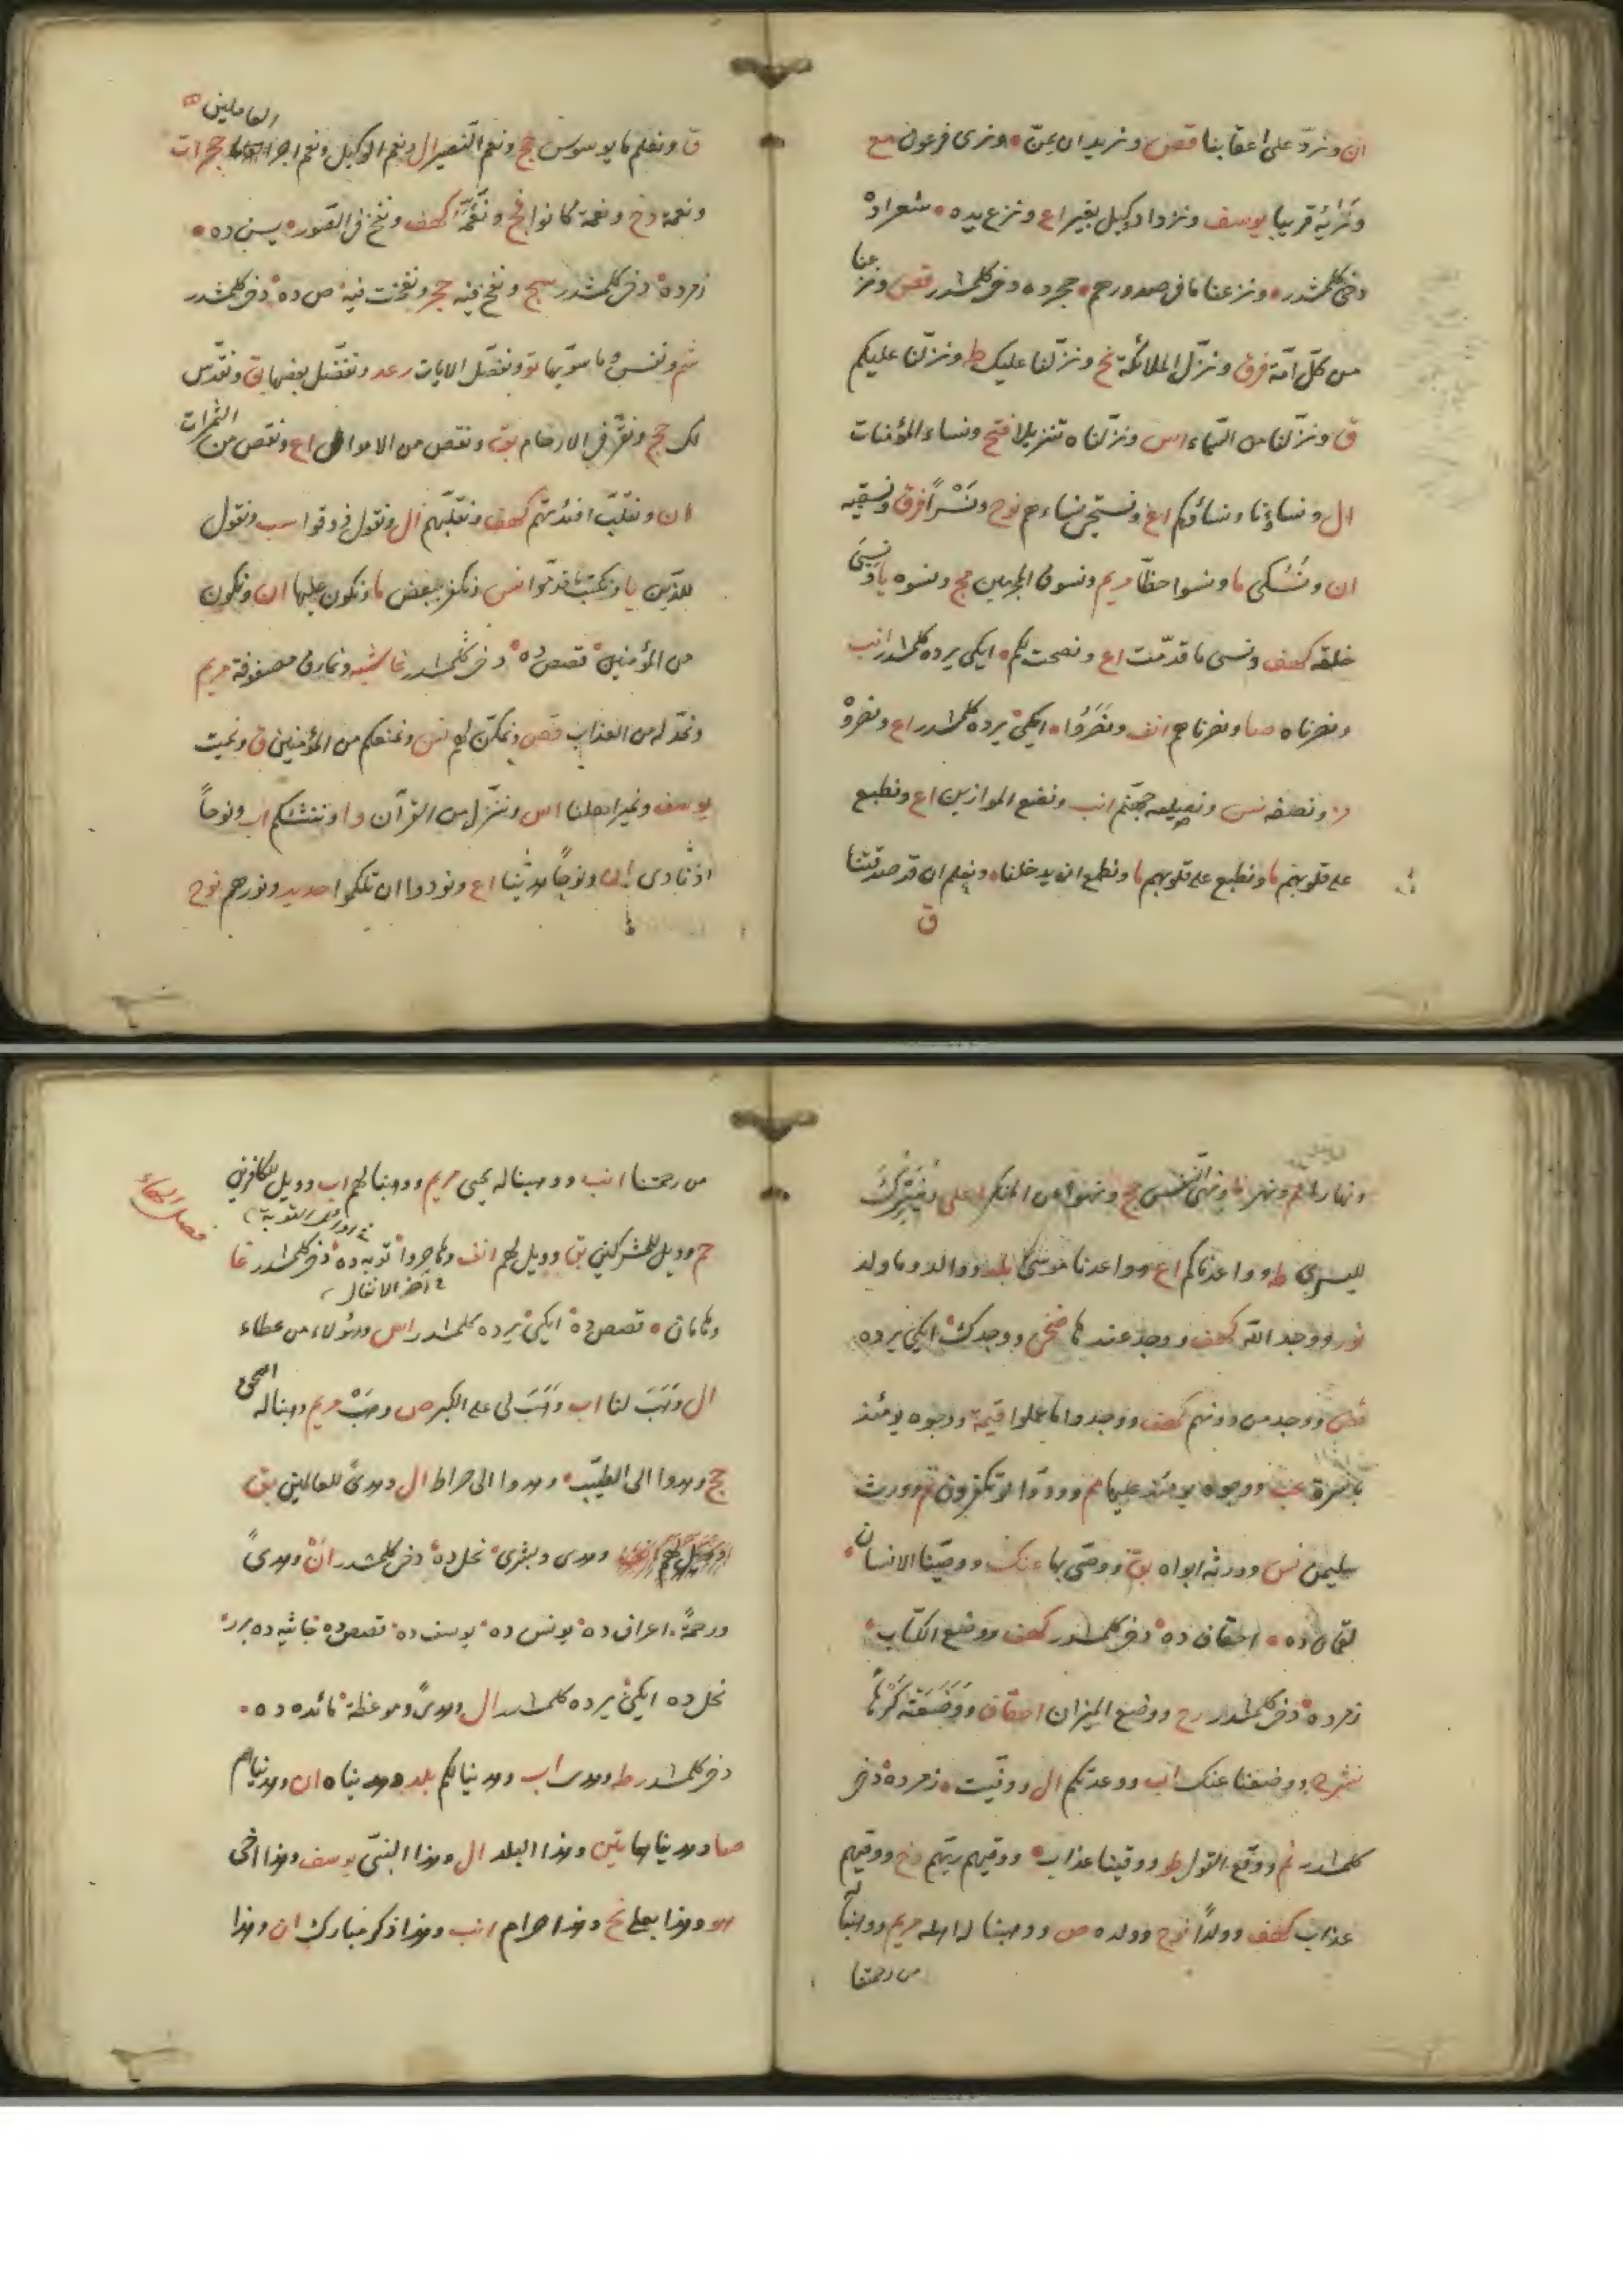 ان ونردّ على اعقابنا قصص ونريد ان نمنّ ونرى فرعون مع
ونراه قريبا يوسف ونزداد كيل بعير اع ونزع يده شعراده
دخى كلمشدر ونزعنا ما فى صدورهم حجرده دخى كلمشدر قصص ونزعنا
من كلّ امّة فرق ونزّل الملائكة نح ونزّلنا عليك ط ونزّلنا عليكم
ق ونزّلنا من السّماء اس ونزّلناه تنزيلا فتح ونساء المؤمنات
ال ونساءنا ونساءكم اع ونستحيى نساءهم نوح ونسرًا فرق ونسقيه
ان ونسكى ما ونسوا حظّا مريم ونسوق المجرمين مج ونسوه يا ونسى
خلقه كهف ونسى ما قدّمت اع ونصحت لكم ايكى يرده كلمشدر انب
ونصرناه صا ونصرناهم انف ونصروا ايكى يرده كلمشدر اع ونصروه
مز ونصفه نس ونصله جهنّم انب ونضع الموازين اع ونطبع
على قلوبهم ما ونطبع على قلوبهم ما ونطمع ان يدخلنا ونعلم ان قد صدقتنا
ق
العاملين
ق ونعلم ما يوسوس حج ونعم النّصير ال ونعم الوكيل ونعم اجر حجرات
ونعمة دخ ونعمة كانوا فتح كهف ونفخ فى الصّور يسن ده
زمرده دخى كلمشدر سج ونفخ فيه حجر ونفخت فيه ص ده دخى كلمشدر
شم ونفس وما سوّيها تو ونفصّل الايات رعد ونفضّل بعضها بق ونقدّس
لك حج ونقرّ فى الارحام بق ونقص من الاموال اع ونقص من الثمرات
ان ونقلّب افئدتهم كهف ونقلّبهم ال ونقول ذوقوا سب ونقول
للذين يا ونكتب ما قدّموا نس ونكفر ببعض ما ونكون عليها ان ونكون
من المؤمنين قصص ده دخى كلمشدر غاشيه ونمارق مصفوفة مريم
ونمدّ له من العذاب قصص ونمكّن لهم نس ونمنعكم من المؤمنين ق ونميت
يوسف ونمير اهلنا اس وننزّل من القرآن وا وننشئكم اب ونوحاً
اذ نادى ونوحاً هدينا اع ونودوا ان تلكموا حديد ونورهم نوح
ونهى النّفس حج ونهوا عن المنكر على ونيسّرك
لليسرى طه وواعدناكم اع وواعدنا موسى بلد ووالد وما ولد
نور ووجد الله كهف ووجد عندها ضحى ووجدك ايكى يرده
قصص ووجد من دونهم كهف ووجدوا ما عملوا قيمة ووجوه يومئذ
باسرة عبس ووجوه يومئذ عليها مم وودّوا لو تكفرون نم وورث
سليمن نس وورثه ابواه بق ووصّى بها عنك ووصّينا الانسان
لقمان ده احقاف ده دخى كلمشدر كهف ووضع الكتاب
زمرده دخى كلمشدر رح ووضع الميزان احقاف ووضعته كرهاً
نشرح ووضعنا عنك اب ووعدتكم ال ووفّيت زمرده دخى
كلمشدر نم ووقع القول طو ووقينا عذاب ووقيهم ربّهم دخ ووقيهم
عذاب كهف وولداً نوح وولده ص ووهبنا له اهله مريم ووهبنا له
من رحمتنا
فصل الهاء
من رحمتنا انب ووهبنا له يحيى مريم ووهبنا لهم اب وويل للكافرين
حم وويل للمشركين بق وويل لهم انف وهاجروا توبه ده دخى كلمشدر عا
فى آخر الانفال
وهامان قصص ده ايكى يرده كلمشدر اس وهؤلاء من عطاء
ال وهب لنا اب وهب لى على الكبر ص وهب مريم وهبنا له اسحق
حج وهدوا الى الطيّب وهدوا الى صراط ال وهدىً للعالمين بق
وهدى وبشرى نحل ده دخى كلمشدر ان وهدىً
ورحمة اعراف ده يونس ده يوسف ده قصص ده جاثيه ده بر
نحل ده ايكى يرده كلمشدر ال وهدىً وموعظة مائده ده
دخى كلمشدر ط وهدى اب وهديناكم بلد وهديناه ان وهديناهم
صا وهديناهما تين وهذا البلد ال وهذا النبىّ يوسف وهذا اخى
هو وهذا بعلى نح وهذا حرام انب وهذا ذكر مبارك ان وهذا